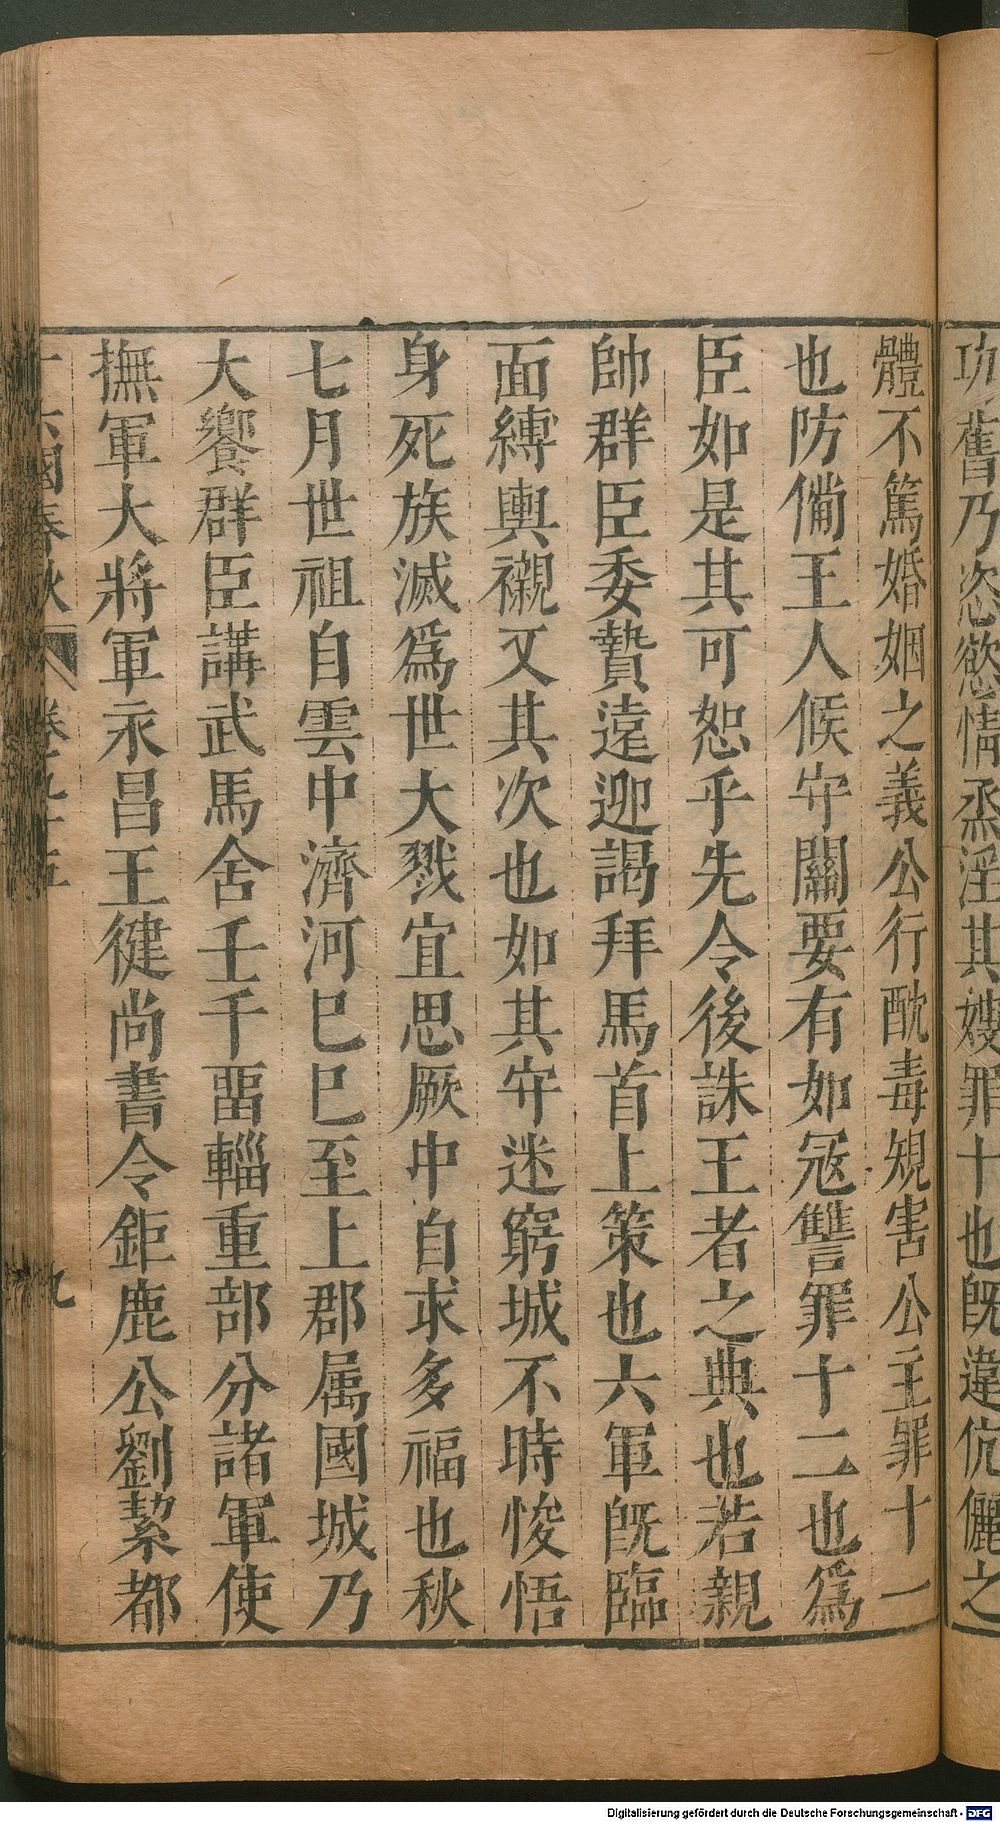 功舊乃恣慾情烝淫其嫂罪十也旣違伉儷之
體不篤婚姻之義公行酖毒規害公主罪十一
也防僃王人候守關要有如寇讐罪十二也爲
臣如是其可恕乎先令後誅王者之典也若親
帥群臣委贄遠迎謁拜馬首上策也六軍旣臨
面縛輿襯又其次也如其守迷窮城不時悛悟
身死族滅爲世大戮宜思厥中自求多福也秋
七月世祖自雲中濟河巳巳至上郡属國城乃
大饗群臣講武馬舍壬千畱輜重部分諸軍使
撫軍大將軍永昌王健尚書令鉅鹿公劉絜都
十六國春秋 卷九十五 九
Digitalisierung gefördert durch die Deutsche Forschungsgemeinschaft - DFG